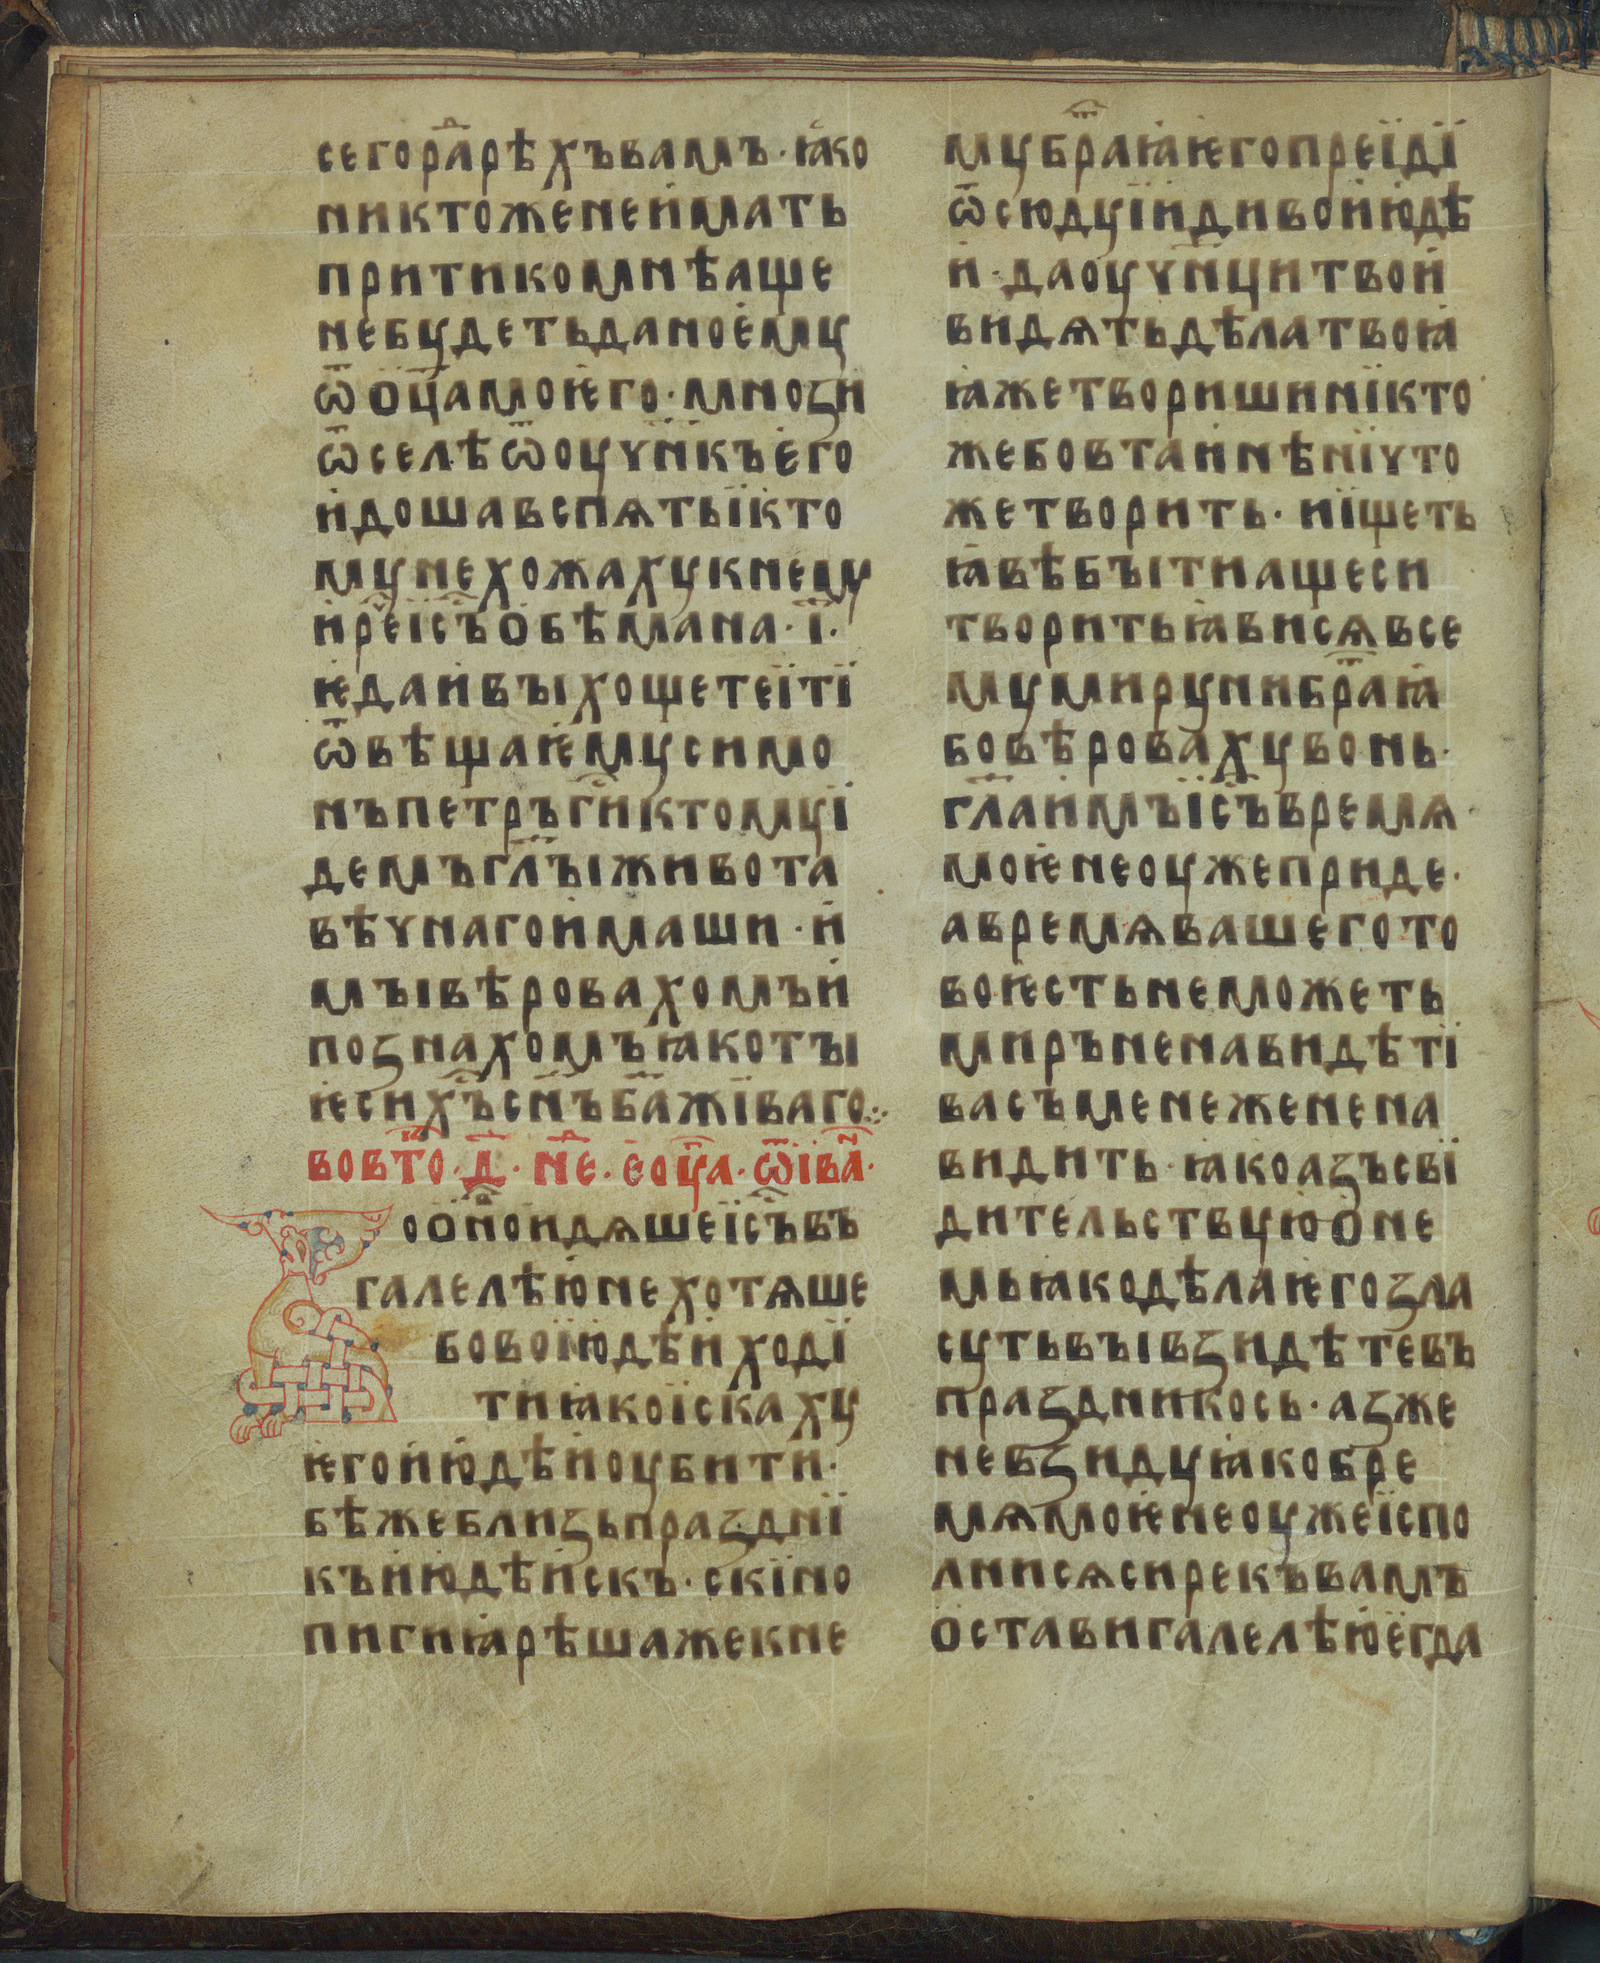 сегораⷣрѣхъвамъ·ꙗко
никтоженеиматъ
притикомнѣаще
небꙋдетьданоемꙋ
ѿѻц҃амоѥго·мнози
ѿселѣѿоучн҃къего
идошавспѧтыїкто
мꙋнехожахꙋкнемꙋ
иреⷱ҇їс҃ъѻбѣмана·і҃·
ѥдаивыхощетеїтї
ѿвѣщаѥмꙋсимо
нъпетръгⷭ҇иктомꙋї
демъгл҃ыживота
вѣчнагоимаши·и
мывѣровахомъи
познахомъꙗкоты
ѥсих҃ъсн҃ъб҃ажїваго
вовтⷪ҇о·д҃·нⷣе·еоуⷢ҇а·ѿіва҃·
оѻн҃оидѧшеїс҃ъвъ
галелѣюнехотѧше
бовоїюдѣиходї
тиꙗкоїскахꙋ
ѥгоиюдѣиоубити·
бѣжеблизьпраздні
къиюдѣискъ·скїно
пигиꙗрѣшажекне
мꙋбраⷮꙗѥгопреїдї
ѿсюдꙋїидивоиюдѣ
и·даоучн҃цитвои
видѧтьдѣлатвоꙗ
ꙗжетворишинїкто
жебовтаинѣнїчто
жетворить·нїщеть
ꙗвѣбытиащеси
творитьꙗвисѧвсе
мꙋмирꙋнибраⷮꙗ
бовѣровахꙋвонь·
гл҃аимъїс҃ъвремѧ
моѥнеоужеприде·
авремѧвашегото
воѥстьнеможеть
миръненавидѣтї
васъменеженена
видить·ꙗкоазъсвї
дительствꙋюѻне
мьꙗкодѣлаѥгозла
сꙋтьвывзидѣтевъ
праздникось·азже
невзидꙋꙗкобре
мѧмоѥнеоужеїспо
лнисѧсирекъвамъ
ѻставигалелѣюегда